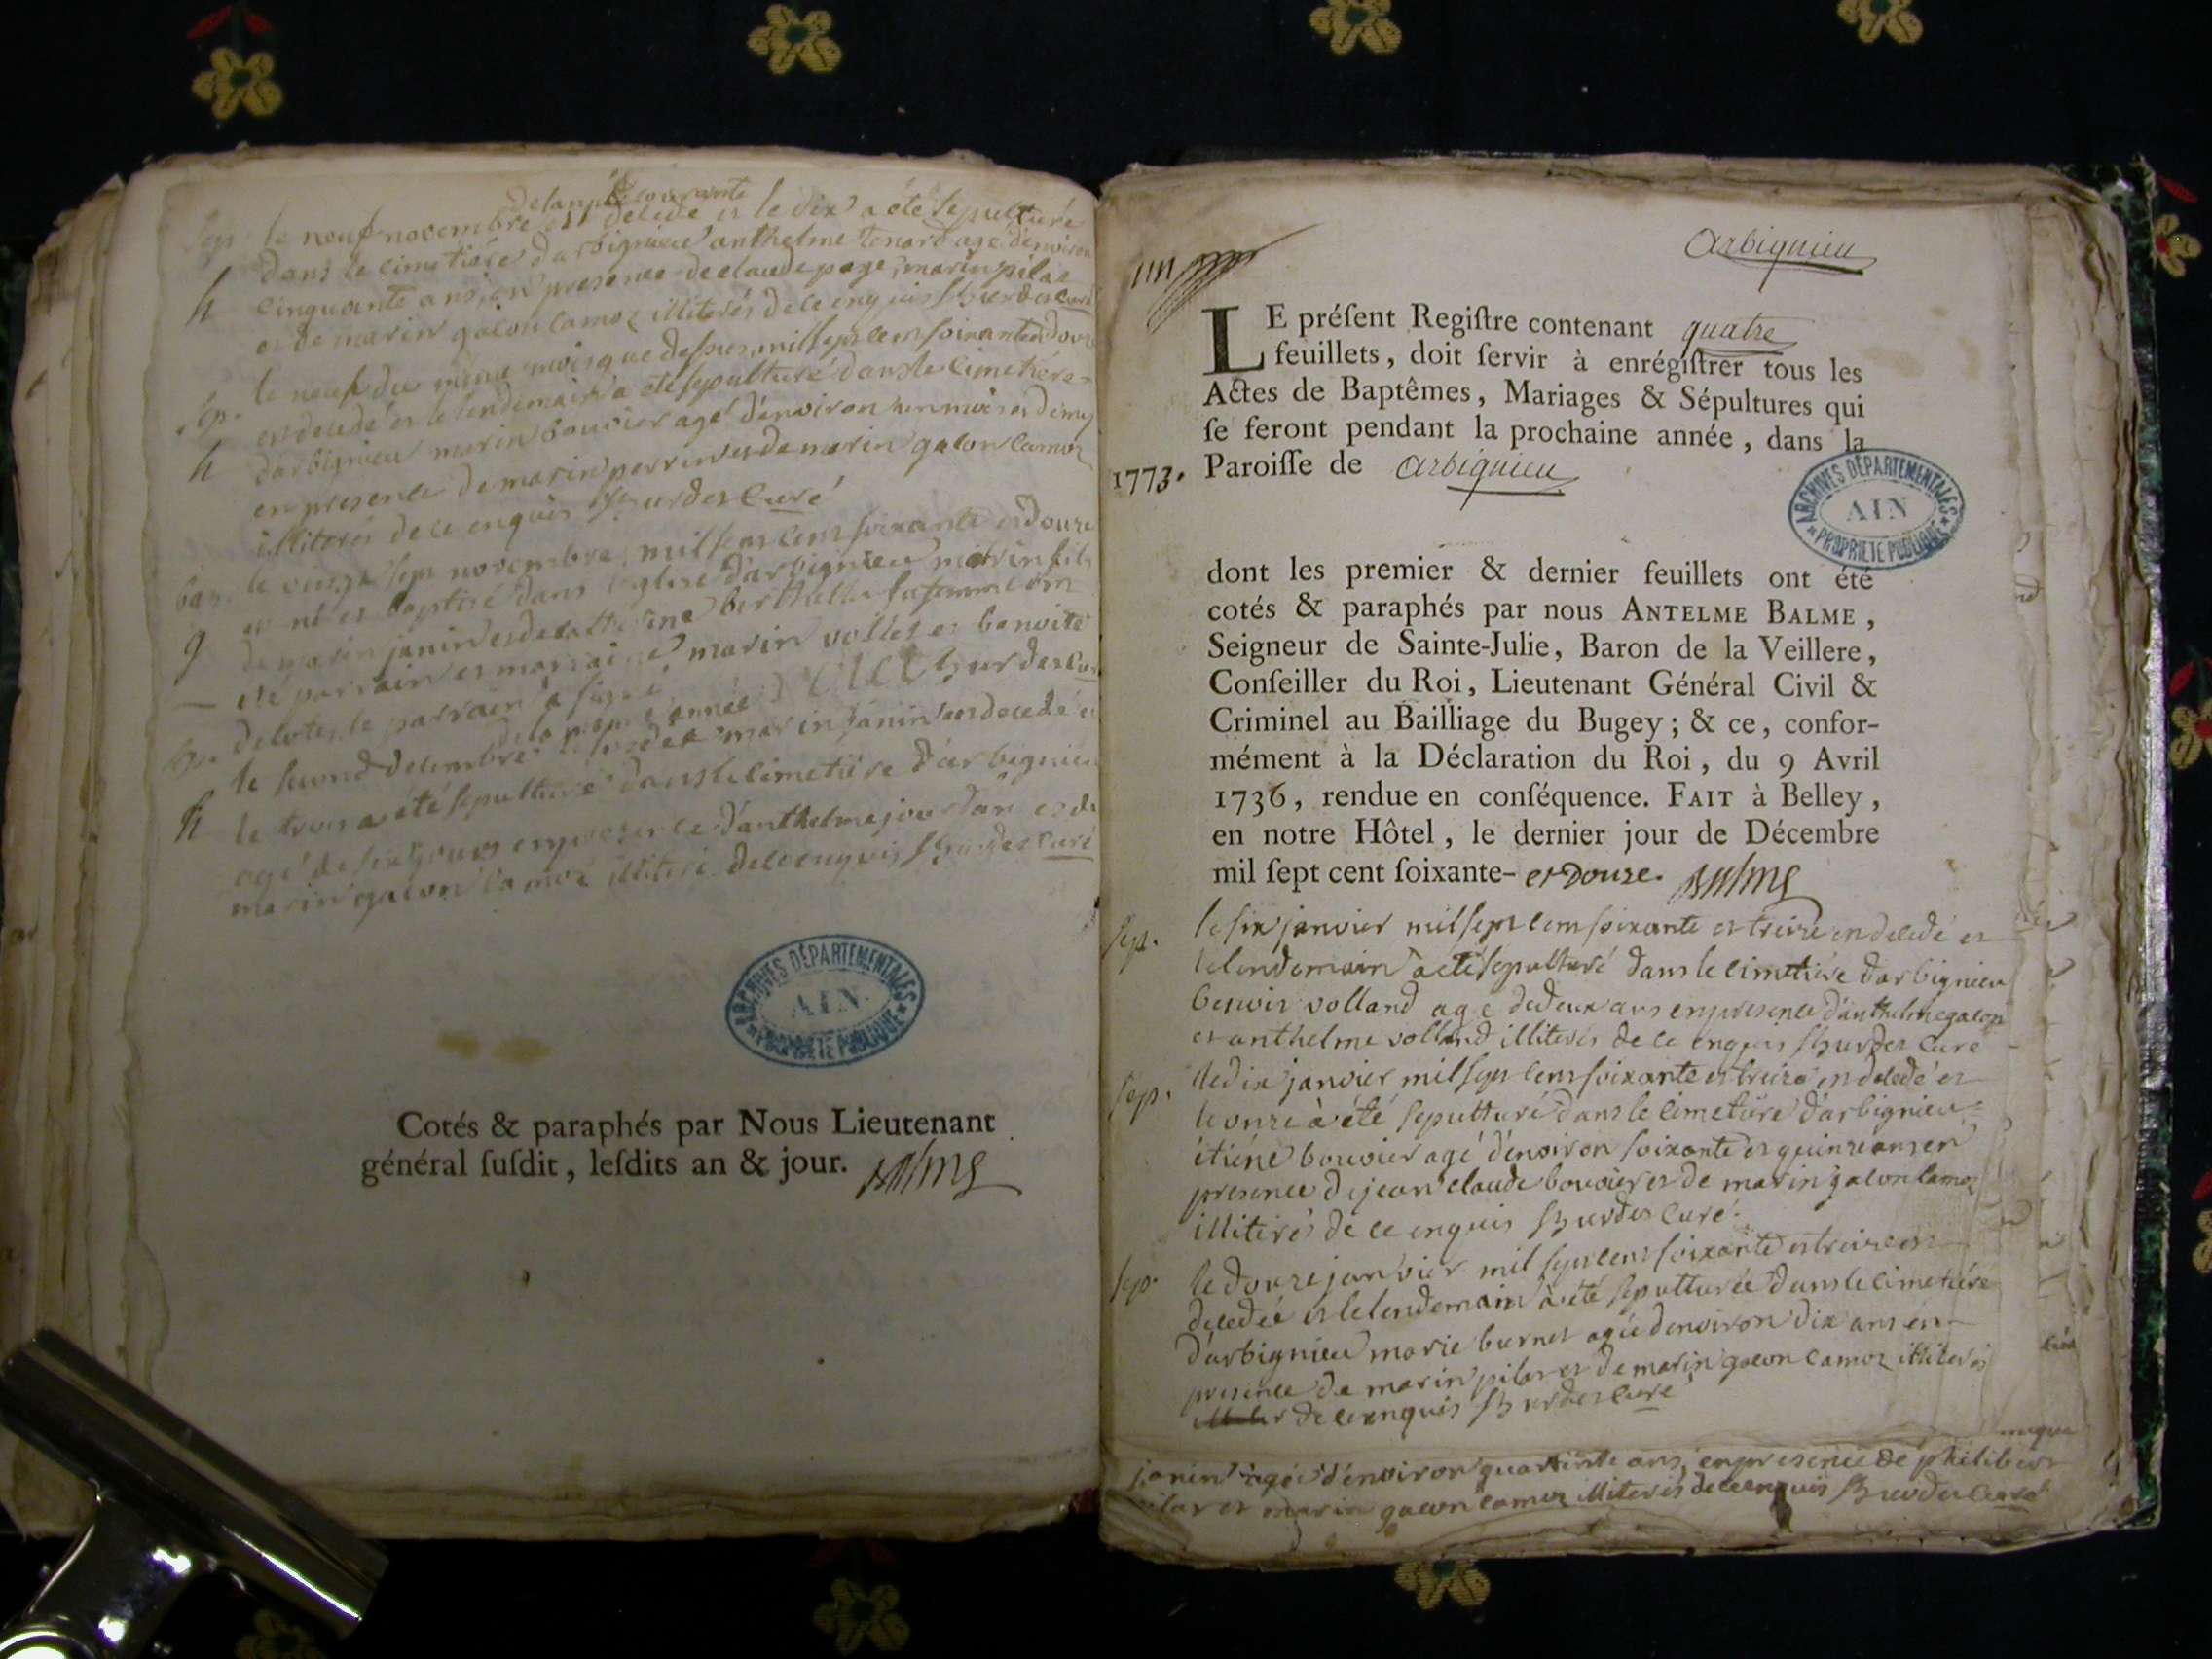 de l'année courante
Sep. le neuf novembre est decedé et le dix a été sepulturé
dans le cimetiére d'arbignieu anthelme tenard agé d'environ
h cinquante ans, en presence de claude page, marin pilas
et de marin galon lamoz illiterés de ce enquis hurdes curé
le neuf du même mois que dessus, mil sept cens soixante et douze
Sep. est decedé et le lendemain a été sepulturé dans le cimetiére
h d'arbignieu marin bouvier agé d'environ un mois et demy
en presence de marin perrin et de marin galon lamoz
illiterés de ce enquis hurdes Curé
bap. le vingt sept novembre mil sept cens soixante et douze
est né et baptisé dans l'eglise d'arbignieu marin fils
g de marin janin et de catherine berthellier sa femme ont
— été parrain et marraine marin vollet et benoite
de la même année
Sep. le second decembre marin janin est decedé et
h le trois a été sepulturé dans le cimetiére d'arbignieu
agé de six jours en presence d'anthelme jourdan et de
marin galon lamoz illiteré de ce enquis hurdes curé
ARCHIVES DÉPARTEMENTALES
AIN
PROPRIÉTÉ PUBLIQUE
Cotés & paraphés par Nous Lieutenant
général ſuſdit, leſdits an & jour. Balme
Arbignieu
LE préſent Regiſtre contenant quatre
feuillets, doit ſervir à enrégiſtrer tous les
Actes de Baptêmes, Mariages & Sépultures qui
ſe feront pendant la prochaine année, dans la
1773. Paroiſſe de Arbignieu
ARCHIVES DÉPARTEMENTALES
AIN
PROPRIÉTÉ PUBLIQUE
dont les premier & dernier feuillets ont été
cotés & paraphés par nous ANTELME BALME,
Seigneur de Sainte-Julie, Baron de la Veillere,
Conſeiller du Roi, Lieutenant Général Civil &
Criminel au Bailliage du Bugey; & ce, confor-
mément à la Déclaration du Roi, du 9 Avril
1736, rendue en conſéquence. FAIT à Belley,
en notre Hôtel, le dernier jour de Décembre
mil ſept cent ſoixante- et Douze. Balme
Sep. le six janvier mil sept cens soixante et treize est decedé et
le lendemain a été sepulturé dans le cimetiére d'arbignieu
benoit volland agé de deux ans en presence d'anthelme galon
et anthelme volland illiterés de ce enquis hurdes Curé
Sep. le dix janvier mil sept cens soixante et treize est decedé et
le onze a été sepulturé dans le cimetiére d'arbignieu
étiéne bouvier agé d'environ soixante et quinze ans en
presence de jean claude bouvier et de marin galon lamoz
illiterés de ce enquis hurdes Curé.
Sep. le douze janvier mil sept cens soixante et treize est
decedée et le lendemain a été sepulturée dans le cimetiére
d'arbignieu marie burnet agée d'environ dix ans en
presence de marin pilas et de marin galon lamoz illiterés
de ce enquis hurdes curé
janin agée d'environ quarante ans, en presence de philibert
pilas et marin galon lamoz illiterés de ce enquis hurdes curé